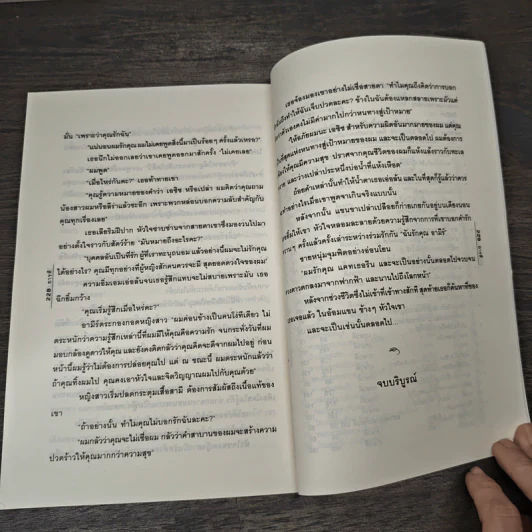 มั่น "เพราะว่าคุณรักฉัน"
"แน่นอนผมรักคุณ ผมไม่เคยพูดสิ่งนี้มาเป็นร้อยๆ ครั้งแล้วเหรอ?"
เธอนึกไม่ออกเลยว่าเขาเคยพูดออกมาสักครั้ง "ไม่เคยเลย"
"ผมพูด"
"เมื่อไหร่กันคะ?" เธอท้าทายเขา
"คุณรู้ความหมายของคำว่า เอซิซ หรือเปล่า ผมคิดว่าคุณถาม
น้องสาวผมหรือลีราแล้วซะอีก เพราะพวกหล่อนบอกความลับสำคัญกับ
คุณทุกเรื่องเลย"
เธอเตียริมฝีปาก หัวใจซาบซ่านจากสายตาเขาซึ่งมองวนไปมา
อย่างตั้งใจราวกับสัตว์ร้าย "มันหมายถึงอะไรคะ?"
"บุคคลอันเป็นที่รัก ผู้ที่เราจะทะนุถนอม แล้วอย่างนี้ผมจะไม่รักคุณ
ได้อย่างไร? คุณมีทุกอย่างที่ผู้หญิงสักคนควรจะมี สุดยอดดวงใจของผม"
ความอิ่มเอมเอ่อล้นจนเธอรู้สึกแทบจะไม่สบายเพราะมัน เธอ
ฉีกยิ้มกว้าง
"คุณเริ่มรู้สึกเมื่อไหร่คะ?"
อามีร์ตระกองกอดหญิงสาว "ผมค่อนข้างเป็นคนโง่ทีเดียว ไม่
ตระหนักว่าความรู้สึกเหล่านี้ที่ผมมีให้คุณคือความรัก จนกระทั่งวันที่ผม
มอบกล้องดูดาวให้คุณ และยังคงคิดกลัวว่าคุณคิดจะตีจากผมไปอยู่ ก่อน
หน้านี้ผมรู้ว่าไม่ต้องการปล่อยคุณไป แต่ ณ ขณะนี้ ผมตระหนักแล้วว่า
ถ้าคุณทิ้งผมไป คุณคงเอาหัวใจและจิตวิญญาณผมไปกับคุณด้วย"
หญิงสาวเริ่มปลดกระดุมเสื้อสามี ต้องการสัมผัสถึงเนื้อแท้ของ
เขา
"ถ้าอย่างนั้น ทำไมคุณไม่บอกรักฉันละคะ?"
"ผมกลัวว่าคุณจะไม่เชื่อผม กลัวว่าคำสาบานของผมจะสร้างความ
ปวดร้าวให้คุณมากกว่าความสุข"
228
เธอจ้องมองเขาอย่างไม่เชื่อสายตา "ทำไมคุณถึงคิดว่าการบอก
ถึงทำให้ฉันเจ็บปวดละคะ? ข้างในฉันต้องแหลกสลายเพราะมัวแต่
ตัวเองคงไม่มีค่ามากไปกว่าหนทางสู่เป้าหมาย"
"ให้อภัยผมนะ เอซิซ สำหรับความผิดอันมากมายของผม แต่คุณ
ใช่สุดแห่งหนทางสู่เป้าหมายของผม และจะเป็นตลอดไป ผมต้องการ
ให้คุณมีความสุข ปราศจากคุณชีวิตของผมก็แห้งแล้งราวกับทะเล
ทราย และว่างเปล่าประหนึ่งบ่อน้ำที่แห้งเหือด"
ถ้อยคำเหล่านั้นทำให้น้ำตาเธอเอ่อล้น และในที่สุดก็รู้แล้วว่าควร
อย่างไรเมื่อเขาพูดจาเกินจริงแบบนั้น
หลังจากนั้น แขนขาเปล่าเปลือยก็ก่ายเกยกันอยู่บนเตียงนอน
ยิ้มให้เขา หัวใจหลอมละลายด้วยความรู้สึกจากการที่เขาบอกคำรัก
ครั้งแล้วครั้งเล่าระหว่างร่วมรักกัน "ฉันรักคุณ อามีร์"
ชายหนุ่มจุมพิตอย่างอ่อนโยน
"ผมรักคุณ แคทเธอรีน และจะเป็นอย่างนั้นตลอดไปจวบจน
ดวงดาวตกลงมาจากฟากฟ้า และนานไปถึงโลกหน้า"
หลังจากช่วงชีวิตซึ่งไม่เข้าที่เข้าทางสักที สุดท้ายเธอก็ค้นหาที่ของ
เธอเจอแล้ว ในอ้อมแขน ข้างๆ หัวใจเขา
และจะเป็นเช่นนั้นตลอดไป...
จบบริบูรณ์